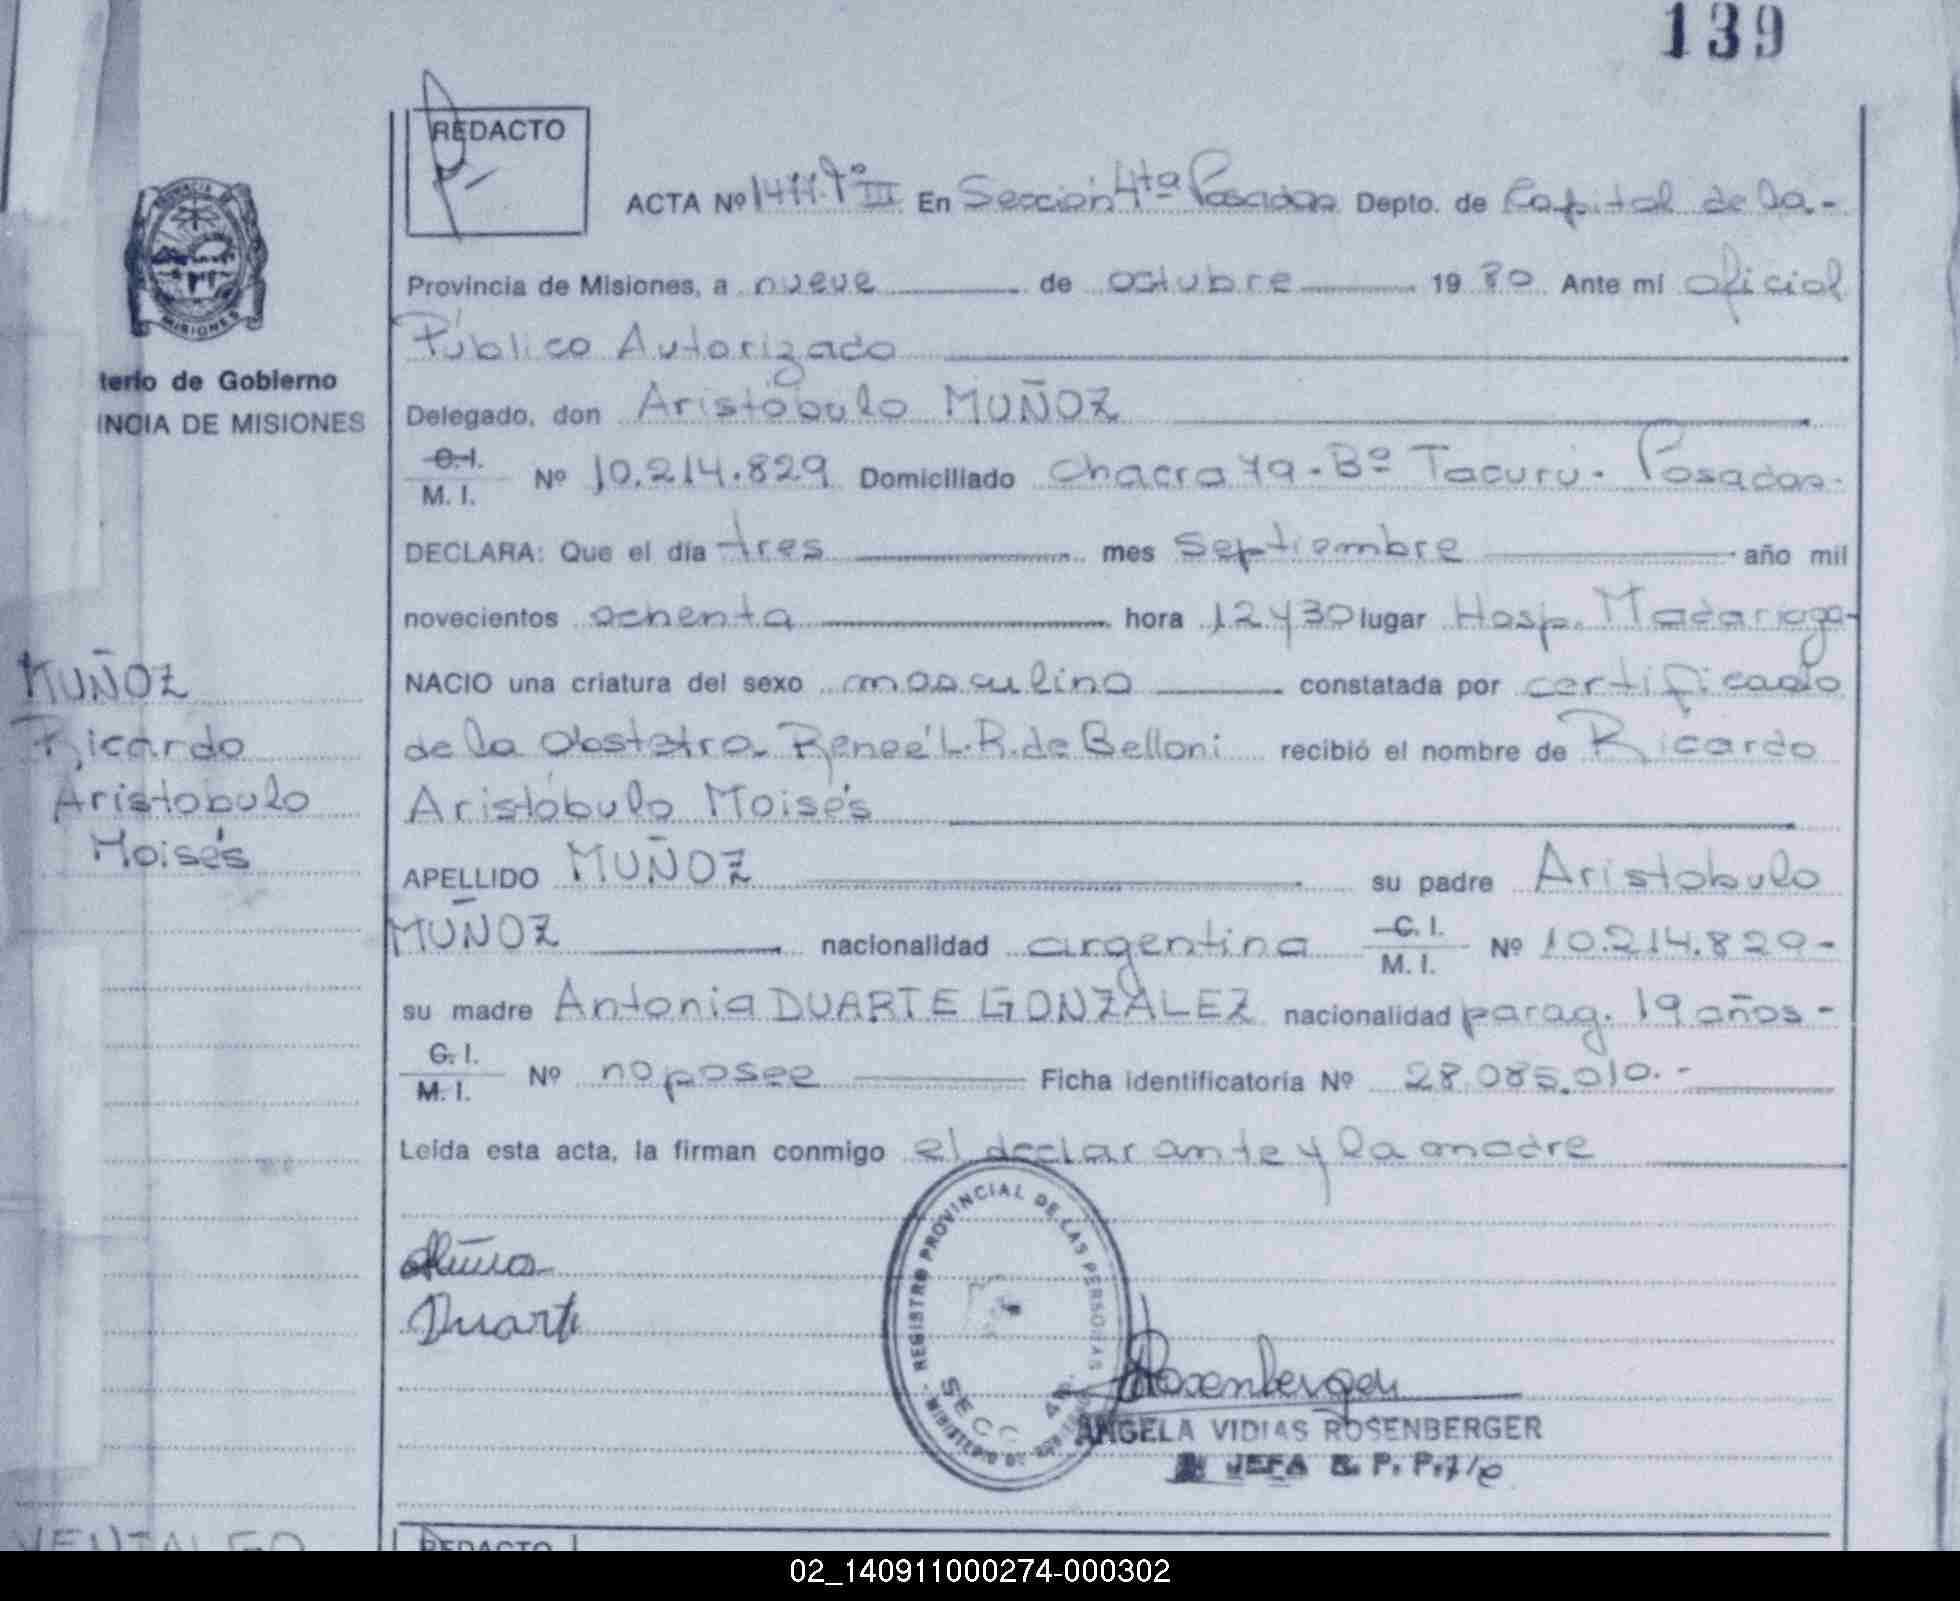 139
REDACTO
ACTA Nº 1477. Tº III En Sección 4ta Posadas Depto. de Capital de la.-
Provincia de Misiones, a nueve de octubre 19 80 Ante mí oficial
Público Autorizado
terio de Gobierno
INCIA DE MISIONES
Delegado, don Aristóbulo MUÑOZ
C. I.
M. I. Nº 10.214.829 Domiciliado Chacra 79. Bº Tacurú. Posadas.
DECLARA: Que el día tres mes septiembre año mil
novecientos ochenta hora 12 y 30 lugar Hosp. Madariaga-
MUÑOZ
Ricardo
Aristobulo
Moisés
NACIO una criatura del sexo masculino constatada por certificado
de la obstetra. Reneé L. R. de Belloni recibió el nombre de Ricardo
Aristóbulo Moisés
APELLIDO MUÑOZ su padre Aristobulo
MUÑOZ nacionalidad argentina C. I.
M. I. Nº 10.214.829-
su madre Antonia DUARTE GONZALEZ nacionalidad parag. 19 años-
C. I.
M. I. Nº no posee Ficha identificatoria Nº 28.085.010.-
Leída esta acta, la firman conmigo el declarante y la madre
Duarte
REGISTRO PROVINCIAL DE LAS PERSONAS
SECC 4ta.
Rosenberger
ANGELA VIDIAS ROSENBERGER
JEFA R. P. P.
REDACTO
02_140911000274-000302